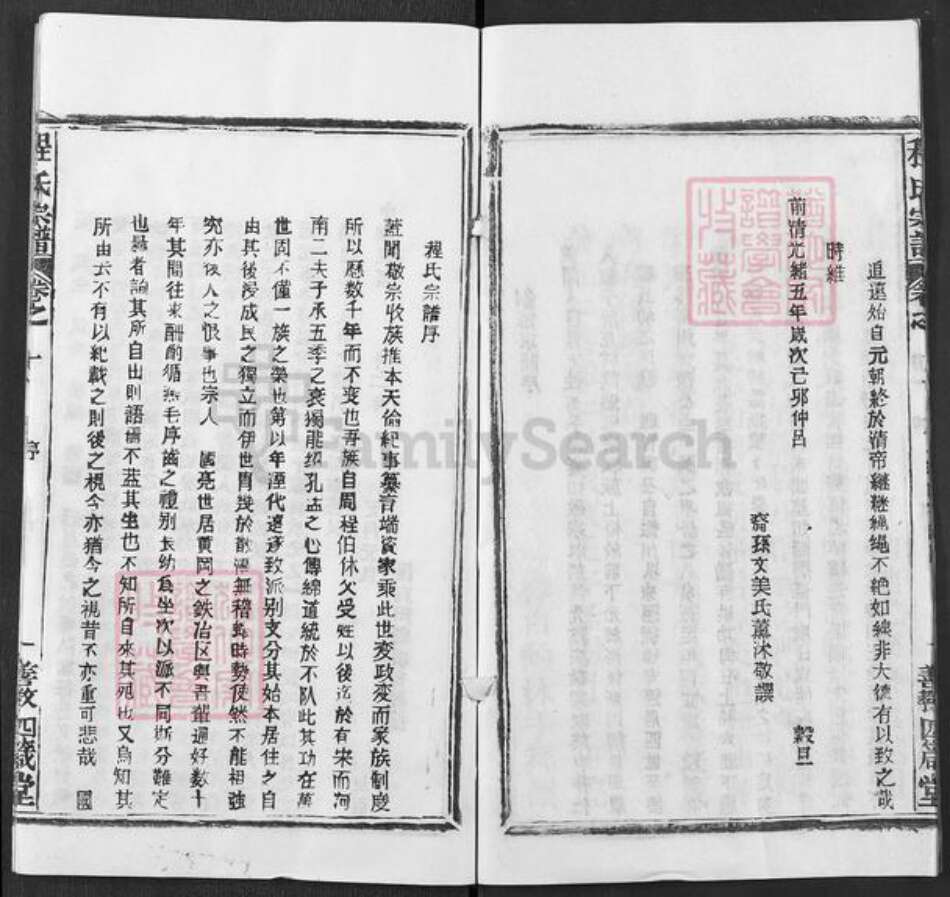 道遠始自元朝終於清帝繼繼繩繩不絕如線非大德有以致之哉
時維
前清光緒五年歲次己卯仲呂 穀旦
裔孫文美氏薰沐敬譔
程氏宗譜序
蓋聞敬宗收族推本天倫紀事纂言端資家乘此世変政変而家族制度
所以歷数千年而不变也吾族自周程伯休父受姓以後迄於有宋而河
南二夫子承五季之衰獨能紹孔孟之心傳綿道統於不队此其功在萬
世固不僅一族之榮也第以年湮代遠逐致派别支分其始本居住夕自
由其後浸成民之獨立而伊世胄幾於散漫無稽 時勢使然不能相强
究亦後人之恨事也宗人 國亮世居黄岡之鉄冶区與吾輩通好数十
年其間往来酬酌循 毛序齒之禮别長幼為坐次以派不同斯分難定
也 者論其所自出則語 不 其生也不知所自来其死也又烏知其
所由去不有以紀載之則後之視今亦猶今之視昔不亦重可悲哉 國
程氏宗譜 卷之 序
善教 四箴堂
FamilySearch